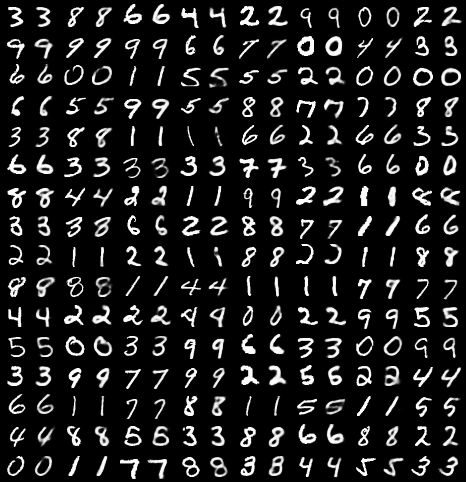 3 3 8 8 6 6 4 4 2 2 9 9 0 0 2 2
9 9 9 9 9 9 6 6 7 7 0 0 4 4 3 3
6 6 0 0 1 1 5 5 5 5 2 2 0 0 0 0
6 6 5 5 9 9 5 5 8 8 7 7 7 7 8 8
3 3 8 8 1 1 1 1 6 6 2 2 6 6 3 3
6 6 3 3 3 3 3 3 7 7 3 3 6 6 0 0
8 8 4 4 2 2 1 1 9 9 2 2 1 1 8 8
3 3 3 8 6 6 2 2 8 8 7 7 1 1 6 6
2 2 1 1 2 2 1 1 8 8 2 2 1 1 8 8
8 8 8 8 1 1 4 4 1 1 1 1 7 9 7 7
4 4 2 2 2 2 4 4 0 0 2 2 9 9 5 5
5 5 0 0 3 3 9 9 6 6 3 3 0 0 9 9
3 3 9 9 7 7 9 9 2 2 5 5 2 2 4 4
6 6 1 1 7 7 8 8 1 1 5 5 1 1 5 5
4 4 8 8 5 5 3 3 8 8 6 6 8 8 2 2
0 0 1 1 7 7 8 8 3 8 4 4 5 5 3 3